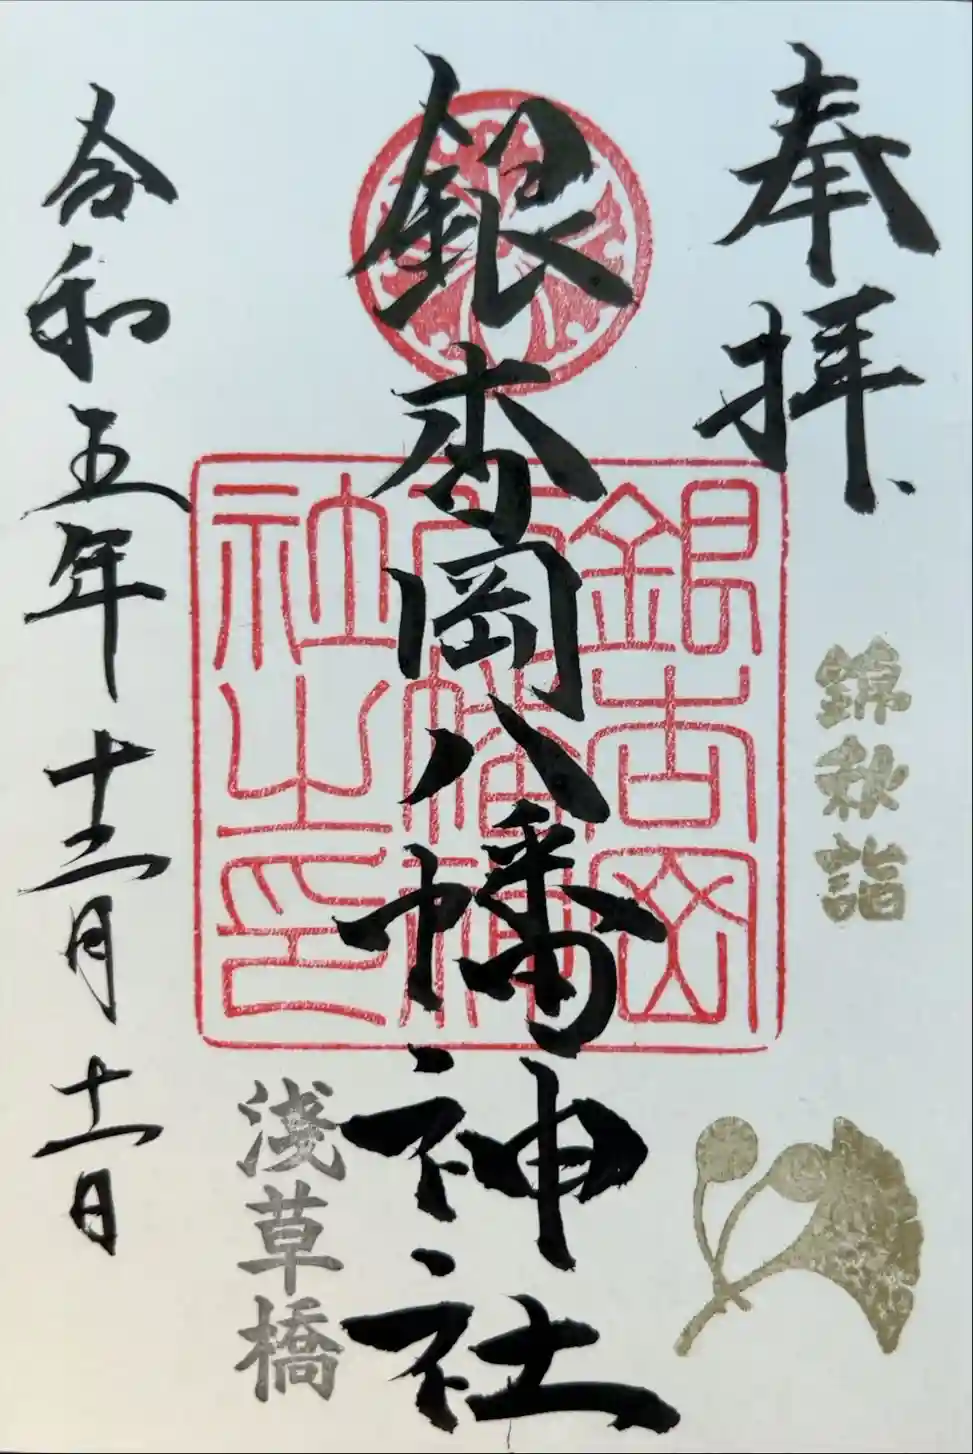 奉拝
錦秋詣
銀杏岡八幡神社
銀杏岡
八幡神
社之印
浅草橋
令和五年十二月十一日